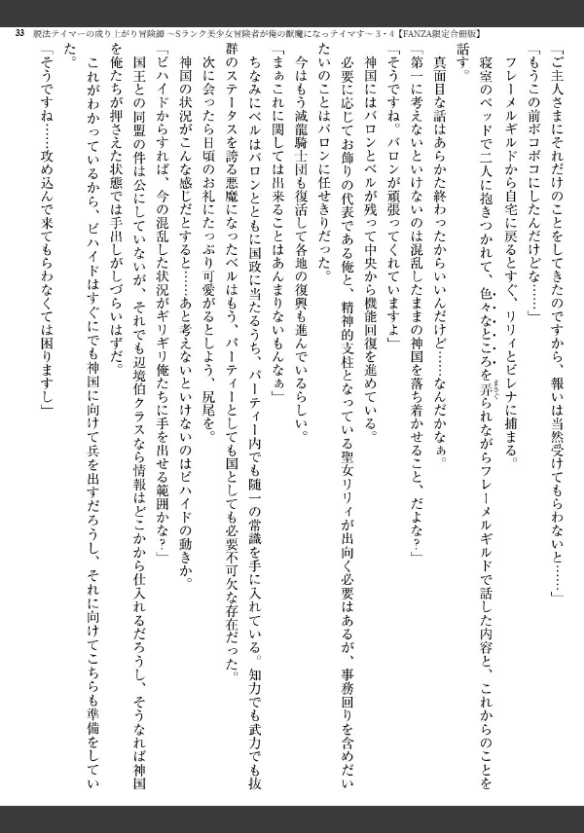 33 脱法テイマーの成り上がり冒険譚 ～Sランク美少女冒険者が俺の獣魔になっテイマす～ 3・4【FANZA限定合冊版】
「ご主人さまにそれだけのことをしてきたのですから、報いは当然受けてもらわないと……」
「もうこの前ボコボコにしたんだけどな……」
フレーメルギルドから自宅に戻るとすぐ、リリィとビレナに捕まる。
寝室のベッドで二人に抱きつかれて、色々なところを弄られながらフレーメルギルドで話した内容と、これからのことを
まさぐ
話す。
真面目な話はあらかた終わったからいいんだけど……なんだかなぁ。
「第一に考えないといけないのは混乱したままの神国を落ち着かせること、だよな？」
「そうですね。バロンが頑張ってくれていますよ」
神国にはバロンとベルが残って中央から機能回復を進めている。
必要に応じてお飾りの代表である俺と、精神的支柱となっている聖女リリィが出向く必要はあるが、事務回りを含めだい
たいのことはバロンに任せきりだった。
今はもう滅龍騎士団も復活して各地の復興も進んでいるらしい。
「まぁこれに関しては出来ることはあんまりないもんなぁ」
ちなみにベルはバロンとともに国政に当たるうち、パーティー内でも随一の常識を手に入れている。知力でも武力でも抜
群のステータスを誇る悪魔になったベルはもう、パーティーとしても国としても必要不可欠な存在だった。
次に会ったら日頃のお礼にたっぷり可愛がるとしよう、尻尾を。
神国の状況がこんな感じだとすると……あと考えないといけないのはビハイドの動きか。
「ビハイドからすれば、今の混乱した状況がギリギリ俺たちに手を出せる範囲かな？」
国王との同盟の件は公にしていないが、それでも辺境伯クラスなら情報はどこかから仕入れるだろうし、そうなれば神国
を俺たちが押さえた状態では手出しがしづらいはずだ。
これがわかっているから、ビハイドはすぐにでも神国に向けて兵を出すだろうし、それに向けてこちらも準備をしてい
た。
「そうですね……攻め込んで来てもらわなくては困りますし」